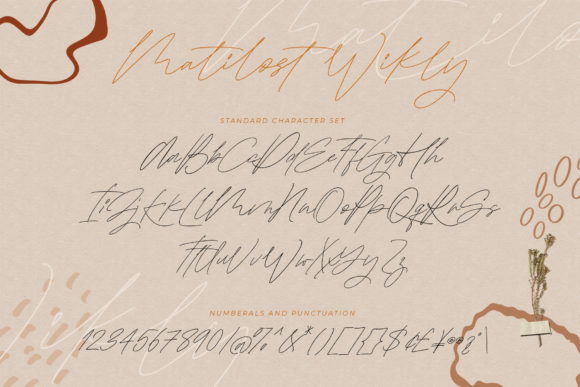 Matilost Wikly
STANDARD CHARACTER SET
AaBbCcDdEeFfGgHh
IiJjKkLlMmNnOoPpQqRrSs
TtUuVvWwXxYyZz
NUMBERALS AND PUNCTUATION
1234567890!@%^&*()[]{}$¢£¥